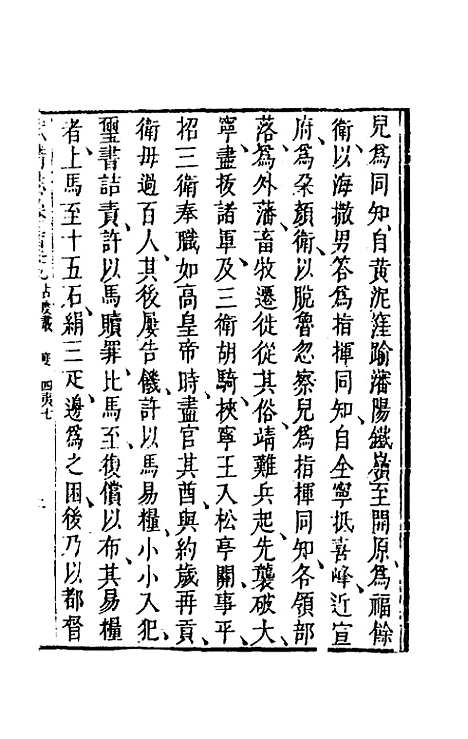 兒為同知自黃泥窪踰瀋陽鐵嶺至開原為福餘
衛以海撒男答為指揮同知自全寧抵喜峰近宣
府為朶顏衛以脫魯忽察兒為指揮同知各領部
落為外藩畜牧遷徙從其俗靖難兵起先襲破大
寧盡拔諸軍及三衛胡騎挾寧王入松亭關事平
招三衛奉職如高皇帝時盡官其酋與約歲再貢
衛毋過百人其後屢告饑許以馬易糧小小入犯
璽書詰責許以馬贖罪比馬至復償以布其易糧
者上馬至十五石絹三疋邊為之困後乃以都督
占度載 度 四夷七